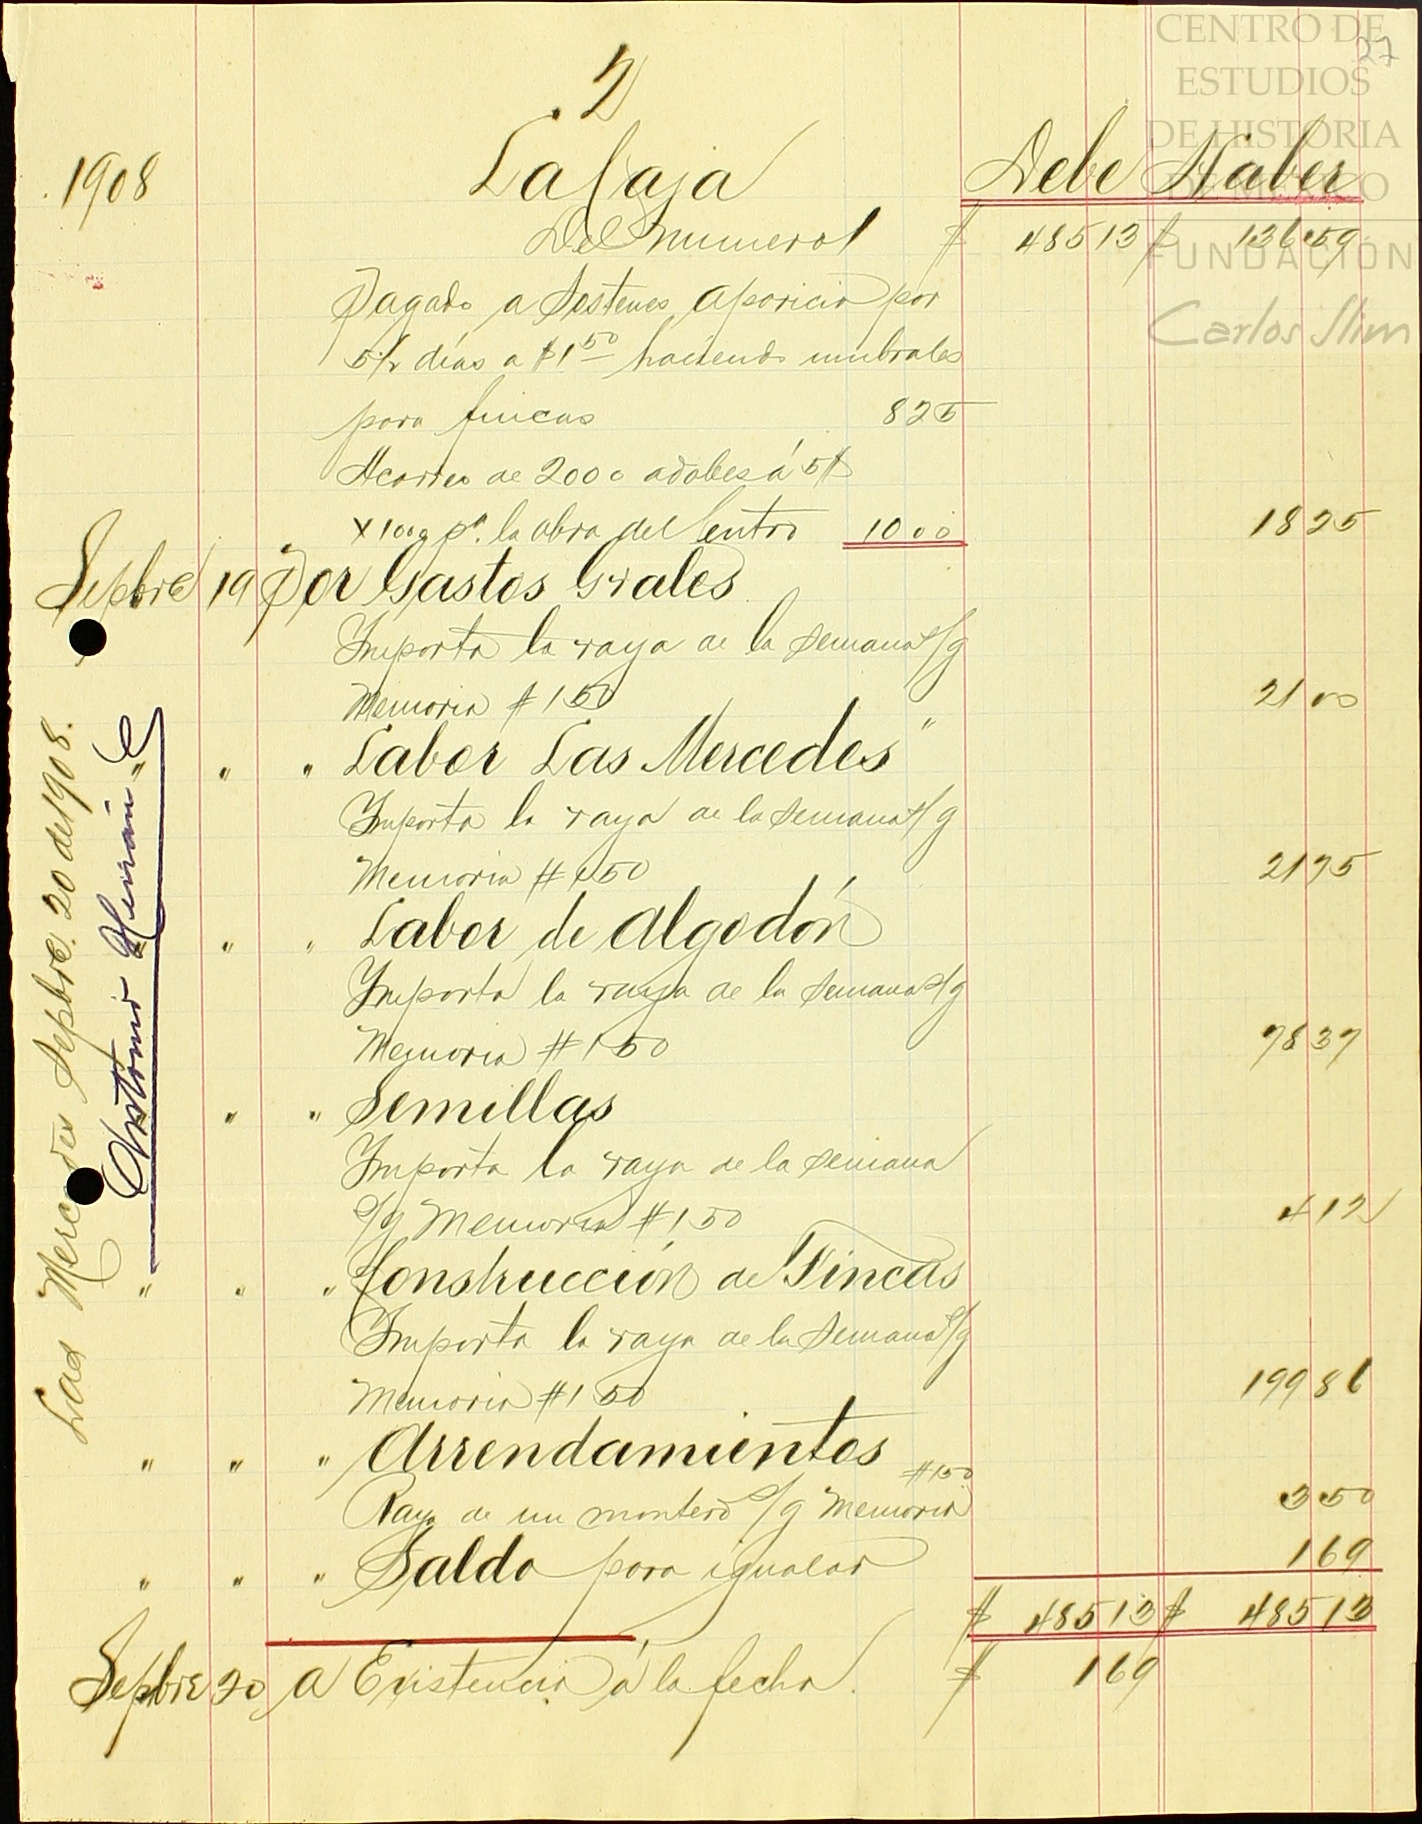 27
CENTRO DE
ESTUDIOS
DE HISTORIA
DE MEXICO
FUNDACIÓN
Carlos Slim
2
1908 La Caja Debe Haber
Del numeral $ 485 13 $ 136 59
Pagado a Sostenes Aparicio por
5½ días a $1.50 haciendo umbrales
para fincas 8 25
Acarreo de 2000 adobes á 5$
X 1000 pa. la obra del Centro 10 00 18 25
Sepbre 19 Por Gastos Grales
Importa la raya de la semana s/g
Memoria # 150 21 00
" " " Labor Las Mercedes"
Importa la raya de la semana s/g
Memoria # 150 21 75
" " " Labor de Algodón
Importa la raya de la semana s/g
Memoria # 150 78 37
" " " Semillas
Importa la raya de la semana
s/g Memoria # 150 4 12
" " " Construcción de Fincas
Importa la raya de la semana s/g
Memoria # 150 199 86
" " " Arrendamientos
Raya de un montero s/g Memoria #150 3 50
" " " Saldo para igualar 1 69
$ 485 13 $ 485 13
Sepbre 20 A Existencia á la fecha. $ 1 69
Las Mercedes Sepbre. 20 de 1908.
Antonio Hernán